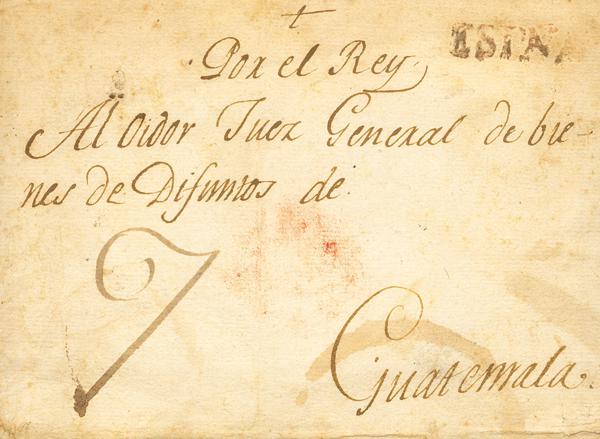 ESPAÑA
Por el Rey
Al Oidor Juez General de bie-
nes de Difuntos de
7
Guatemala.